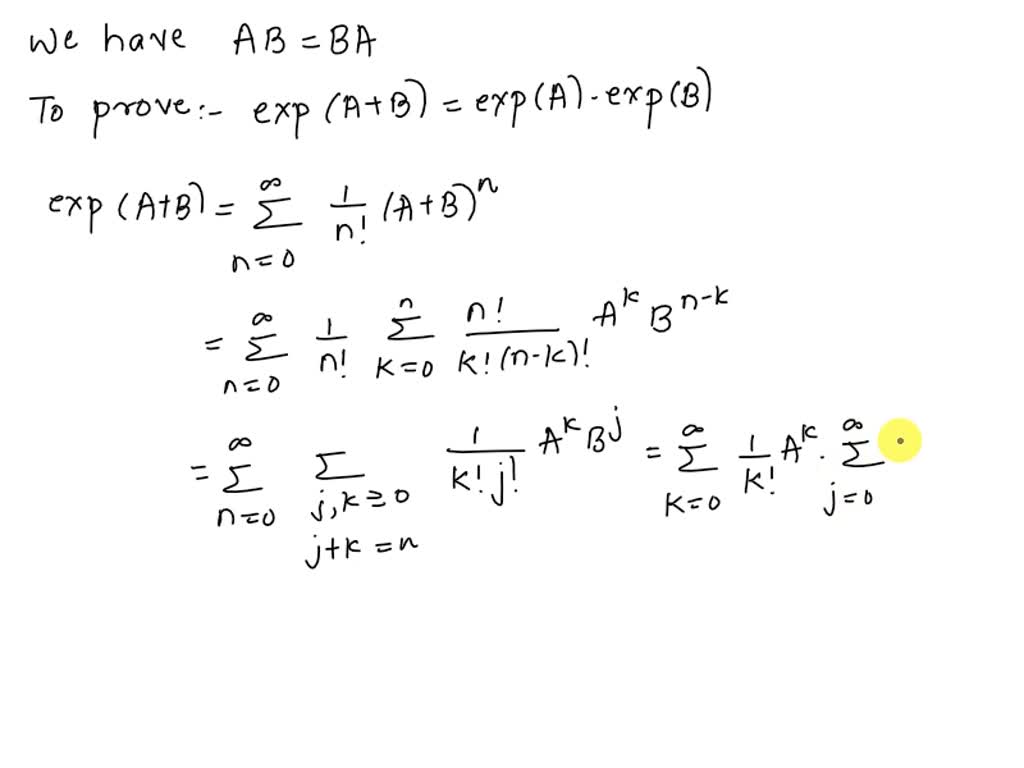 We have AB = BA
To prove:- exp(A+B) = exp(A)·exp(B)
exp(A+B) = ∞ Σ n=0 1/n! (A+B)^n
= ∞ Σ n=0 1/n! n Σ K=0 n!/k!(n-k)! A^k B^n-k
= ∞ Σ n=0 Σ j,k≥0 j+k=n 1/k!j! A^k B^j = ∞ Σ K=0 1/k! A^k · ∞ Σ j=0